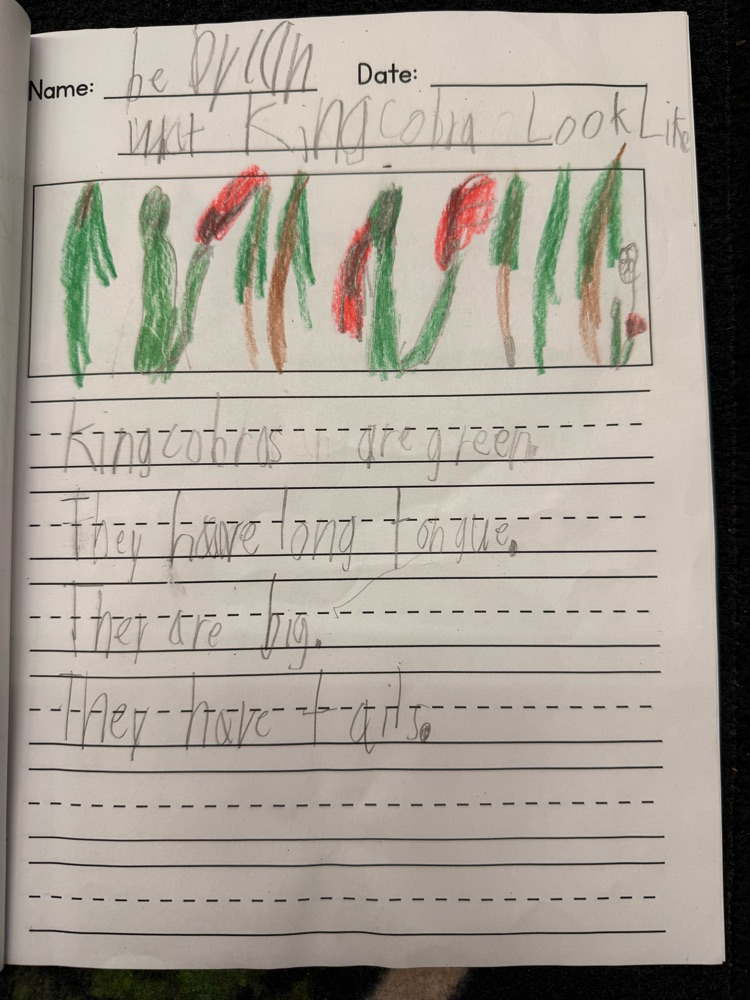 Name: be Dylan Date:
wht King cobra Look Like
King cobras are green.
They have long tongue.
They are big.
They have tails.